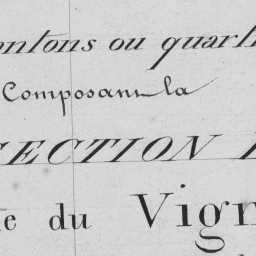 ontons ou quart
Composant la
SECTION
e du Vign